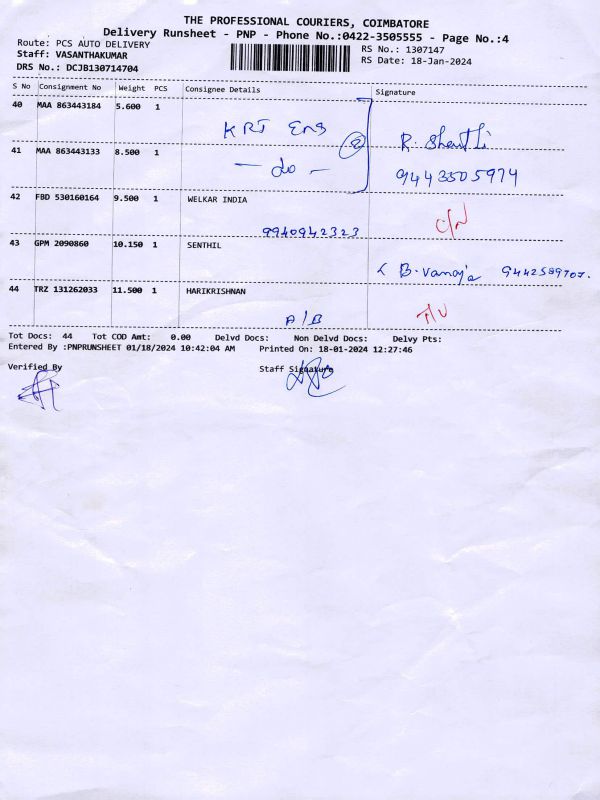 THE PROFESSIONAL COURIERS, COIMBATORE
Delivery Runsheet - PNP - Phone No.:0422-3505555 - Page No.:4
Route: PCS AUTO DELIVERY
RS No.: 1307147
Staff: VASANTHAKUMAR
RS Date: 18-Jan-2024
DRS No.: DCJB130714704
S No Consignment No Weight PCS Consignee Details Signature
40 MAA 863443184 5.600 1
KRJ Ens
2
R. Shanthi
41 MAA 863443133 8.500 1
— do —
9443505974
42 FBD 530160164 9.500 1 WELKAR INDIA
9940942323
C/N
43 GPM 2090860 10.150 1 SENTHIL
B. Vanaja 9442589707.
44 TRZ 131262033 11.500 1 HARIKRISHNAN
A/B
Tot Docs: 44 Tot COD Amt: 0.00 Delvd Docs: Non Delvd Docs: Delvy Pts:
Entered By :PNPRUNSHEET 01/18/2024 10:42:04 AM Printed On: 18-01-2024 12:27:46
Verified By
Staff Signature